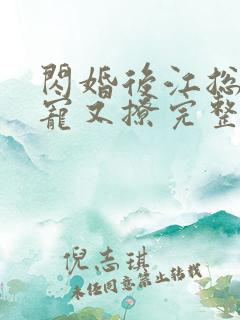 閃婚後江總
寵又撩完整
倪志琪
未任同意禁止转载